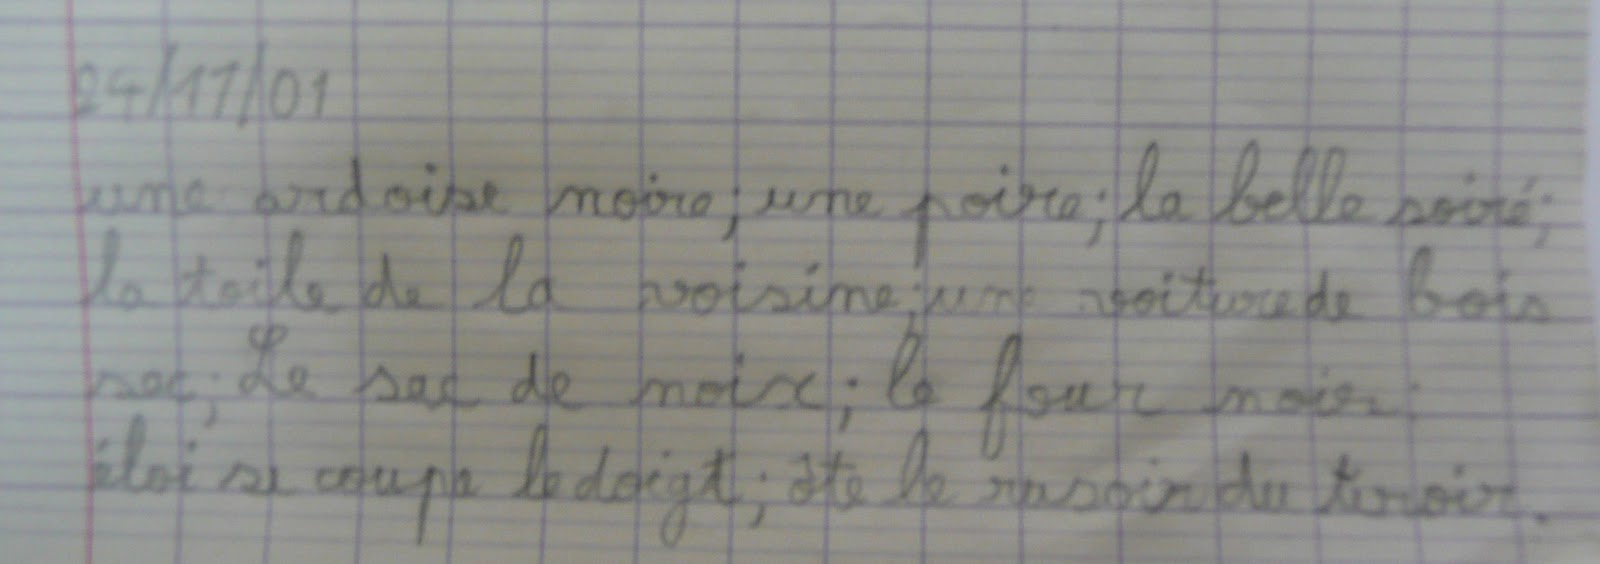 24/11/01
une ardoise noire; une poire; la belle soiré;
la toile de la voisine; une voiture de bois
sec; Le sac de noix; le four noir.
éloi se coupe le doigt; ôte le rasoir du tiroir.